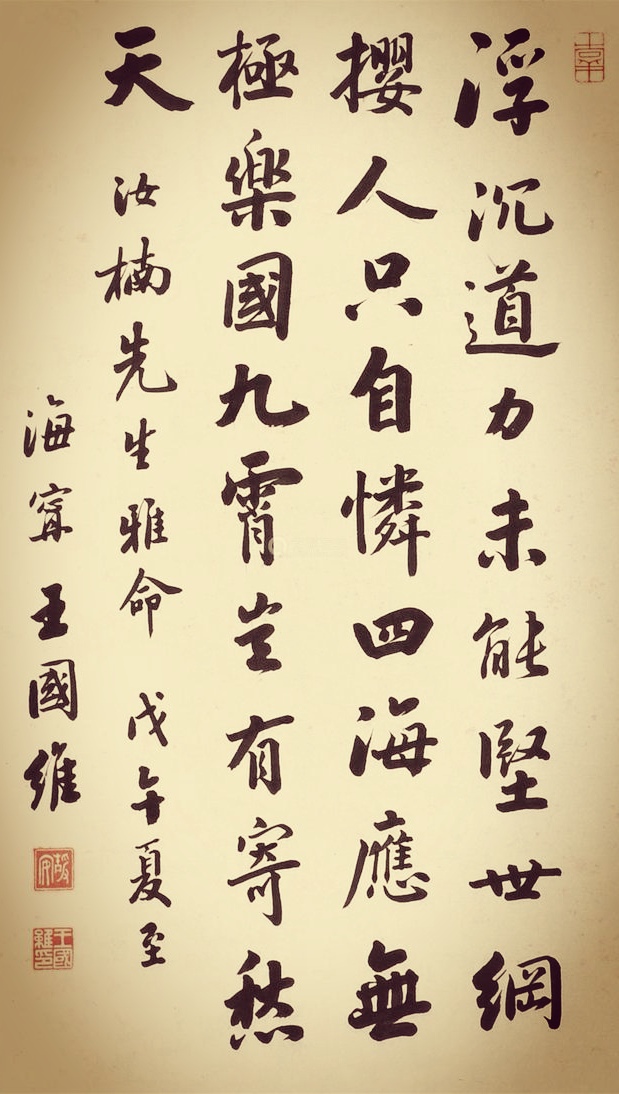 浮沉道力未能堅世網
攖人只自憐四海應無
極樂國九霄豈有寄愁
天
汝楠先生雅命 戊午夏至
海甯王國維
靜安
王國維印